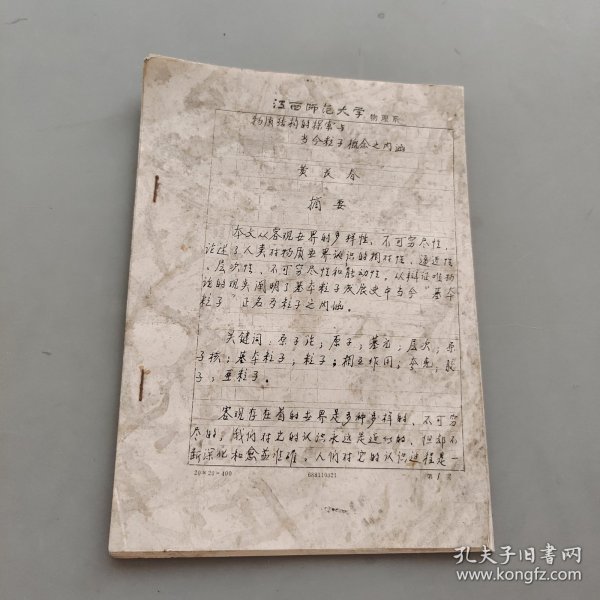 江西师范大学物理系
物质结构的探索与
当今粒子概念之内涵
黄长春
摘要
本文从客观世界的多样性、不可穷尽性,
论述了人类对物质世界认识的相对性、递进性
、层次性、不可穷尽性和能动性。从辩证唯物
论的观点阐明了基本粒子发展史中当今“基本
粒子”正名为粒子之内涵。
关键词:原子论;原子;基元;层次;原
子核;基本粒子;粒子;相互作用;夸克;胶
子;亚粒子。
客观存在着的世界是多种多样的、不可穷
尽的;我们对它的认识永远是近似的,但却不
断深化和愈益准确。人们对它的认识过程是一
20×20=400
第1页
孔夫子旧书网
www.kongfz.com